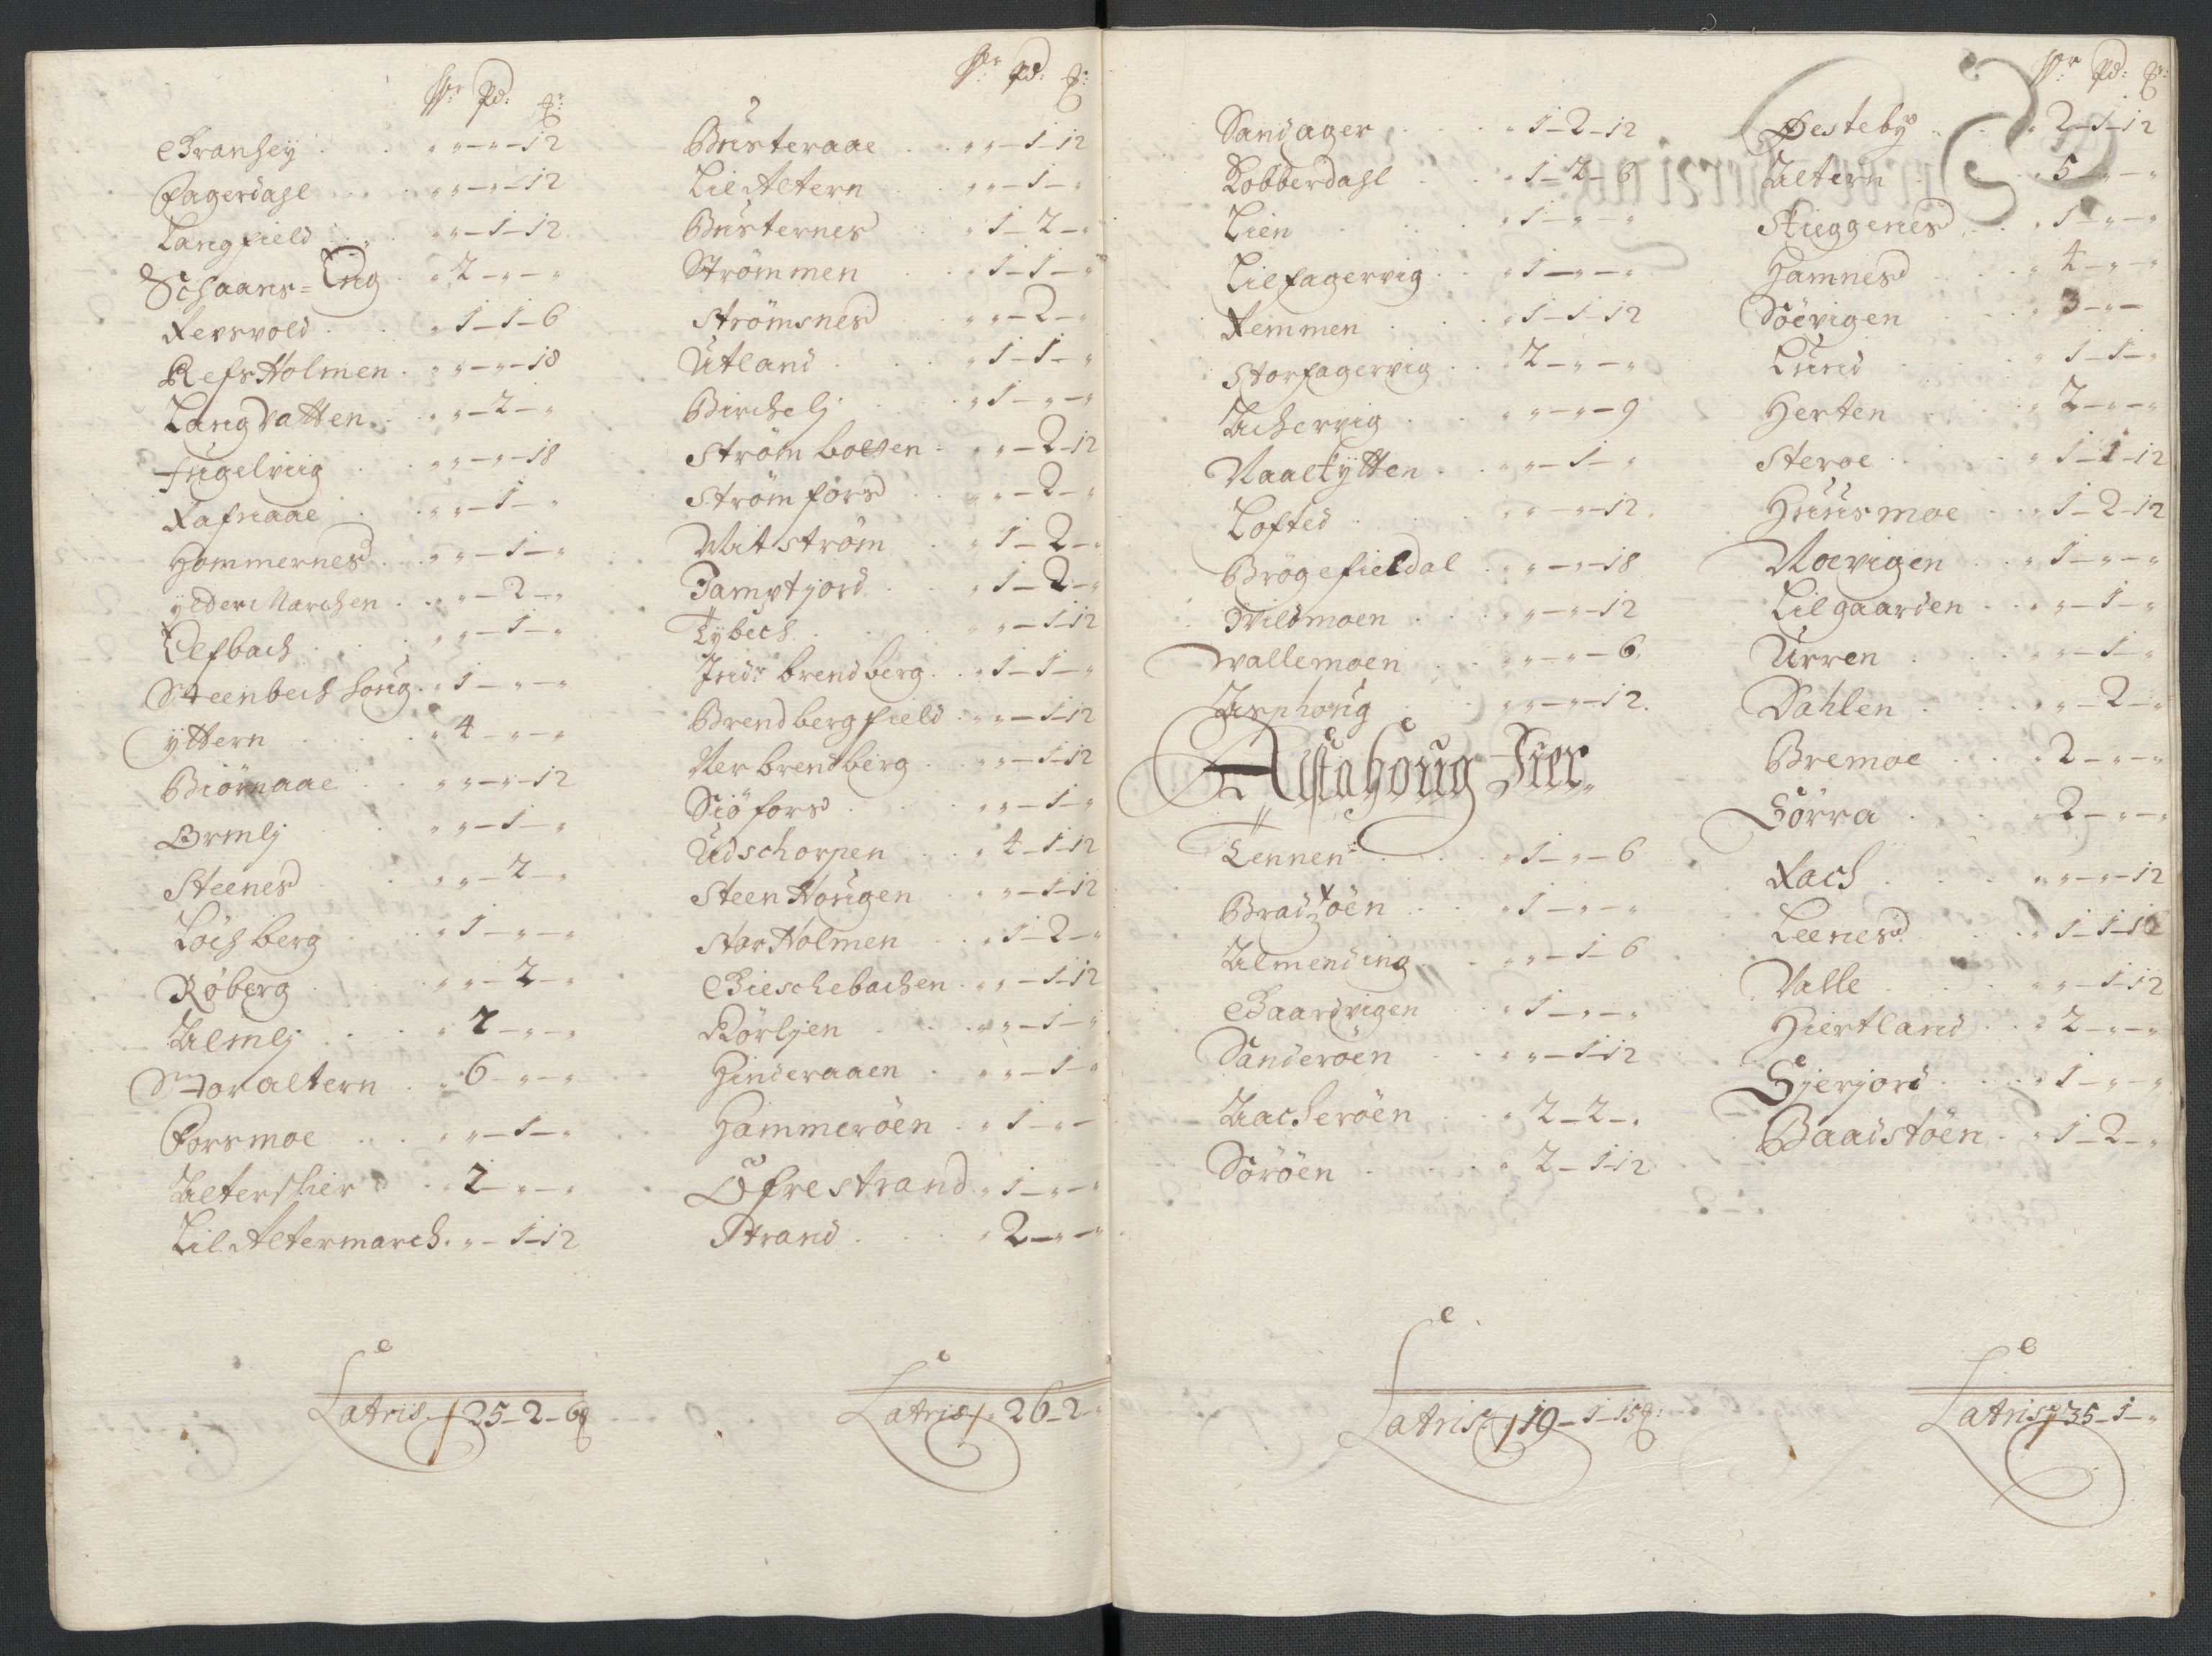 Spr pd: ₰:
Granheÿ . . " " - " - 12
Fagerdahl . . " " - " - 12
Langfield . . " " - 1 - 12
Schaans=Eng . " 2 - " - "
Revsvold . . " 1 - 1 - 6
Refs Holmen . " " - " - 18
Lang Vatten . " " - 2 - "
Fugelviig . . " " - " - 18
Rafnaae . . " " - 1 - "
Hammernes . " " - 1 - "
ÿlderMarchen . " " - 2 - "
Elfbach . . " " - 1 - "
Steenbech houg . " 1 - " - "
ÿttern . . " 4 - " - "
Biörnaae . . " " - " - 12
Ormlj . . " " - 1 - "
Steenes . . " " - 2 - "
Löchberg . . " 1 - " - "
Røberg . . " " - 2 - "
Almlj . . " 2 - " - "
Storaltern . " 6 - " - "
Forsmoe . . " " - 1 - "
Alterskier . " 2 - " - "
Lil Altermarch . " - 1 - 12
Lateris / 25 - 2 - 6 ₰
Spr pd: ₰:
Busteraae . . " " - 1 - 12
Lil Altern . . " " - 1 - "
Busternes . . " 1 - 2 - "
Strömmen . . " 1 - 1 - "
Strømsnes . . " " - 2 - "
Utland . . " 1 - 1 - "
Birchelj . . " 1 - " - "
Strøm boesen . " " - 2 - 12
Strøm fors . . " " - 2 - "
Mitstrøm . . " 1 - 2 - "
Tamptjord . . " 1 - 2 - "
Tÿbech . . " " - 1 - 12
Indr brendberg . " 1 - 1 - "
Brendbergfield . " " - 1 - 12
Ner brendberg . " " - 1 - 12
Siöfors . . " " - 1 - "
Udschorpen . " 4 - 1 - 12
Steen Hougen . " " - 1 - 12
Star Holmen . " 1 - 2 - "
Gieschebachen . " " - 1 - 12
Rörljen . . " " - 1 - "
Hinderaaen . " " - 1 - "
Hammeröen . " 1 - " - "
Öfrestrand . " 1 - " - "
Strand . . " 2 - " - "
Lateris / " 26 - 2 - "
Sandager . . " 1 - 2 - 12
Robberdahl . " 1 - 2 - 6
Lien . . " 1 - " - "
Lilfagervig . " 1 - " - "
Remmen . . " 1 - 1 - 12
Storfagervig . . 2 - " - "
Achervig . . " " - " - 9
Naaekÿtten . " " - 1 - "
Lofted . . " " - " - 12
Brögefieldal . " " - " - 18
Wildmoen . . " " - " - 12
Wallemoen . . " " - " - 6
Asphoug . . " " - " - 12
Alstahoug Fier.
Tennen . . " 1 - " - 6
Bradzöen . . " 1 - " - "
Almending . . " " - 1 - 6
Gaardvigen . " 1 - " - "
Sanderöen . . " " - 1 - 12
Aacheröen . . " 2 - 2 - "
Söröen . . " 2 - 1 - 12
Lateris / 19 - 1 - 15 ₰:
Spr pd: ₰:
Østebÿe . . " 2 - 1 - 12
Altern . . " 5 - " - "
Stiuggenes . . " 1 - " - "
Hamnes . . " 4 - " - "
Söevigen . . " 3 - " -
Lund . . " 1 - 1 - "
Herten . . " 2 - " - "
Steroe . . " 1 - 1 - 12
Huusmoe . . " 1 - 2 - 12
Noevigen . . " 1 - " - "
Lilgaarden . . " " - 1 - "
Urren . . " " - 1 - "
Dahlen . . " " - 2 - "
Bremoe . . " 2 - " - "
Sörra . . " 2 - " - "
Rach . . " " - " - 12
Leenes . . " 1 - 1 - 12
Valle . . " " - 1 - 12
Hiertland . . " 2 - " - "
Sjerjord . . " 1 - " - "
Baadstöen . . " 1 - 2 - "
Lateris / 35 - 1 - "